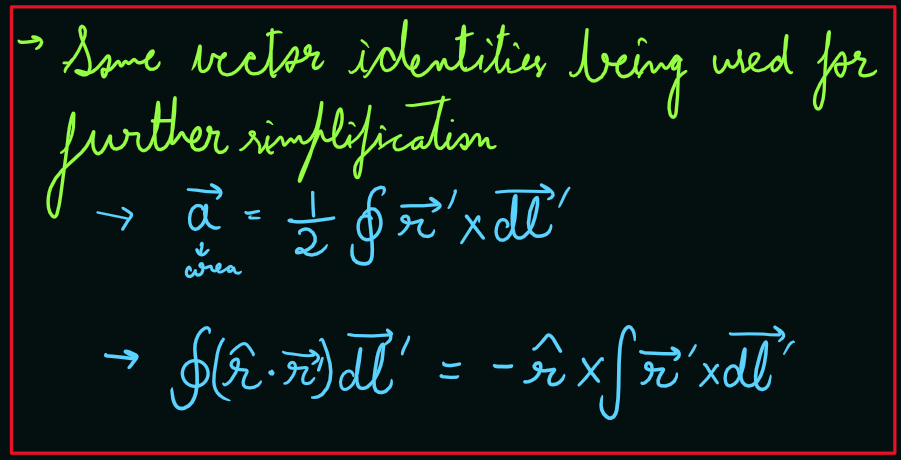 → Some vector identities being used for
further simplification
→ $\vec{a} = \frac{1}{2} \oint \vec{r}' \times \vec{dl}'$
↓
area
→ $\oint (\hat{r} \cdot \vec{r}') \vec{dl}' = -\hat{r} \times \int \vec{r}' \times \vec{dl}'$